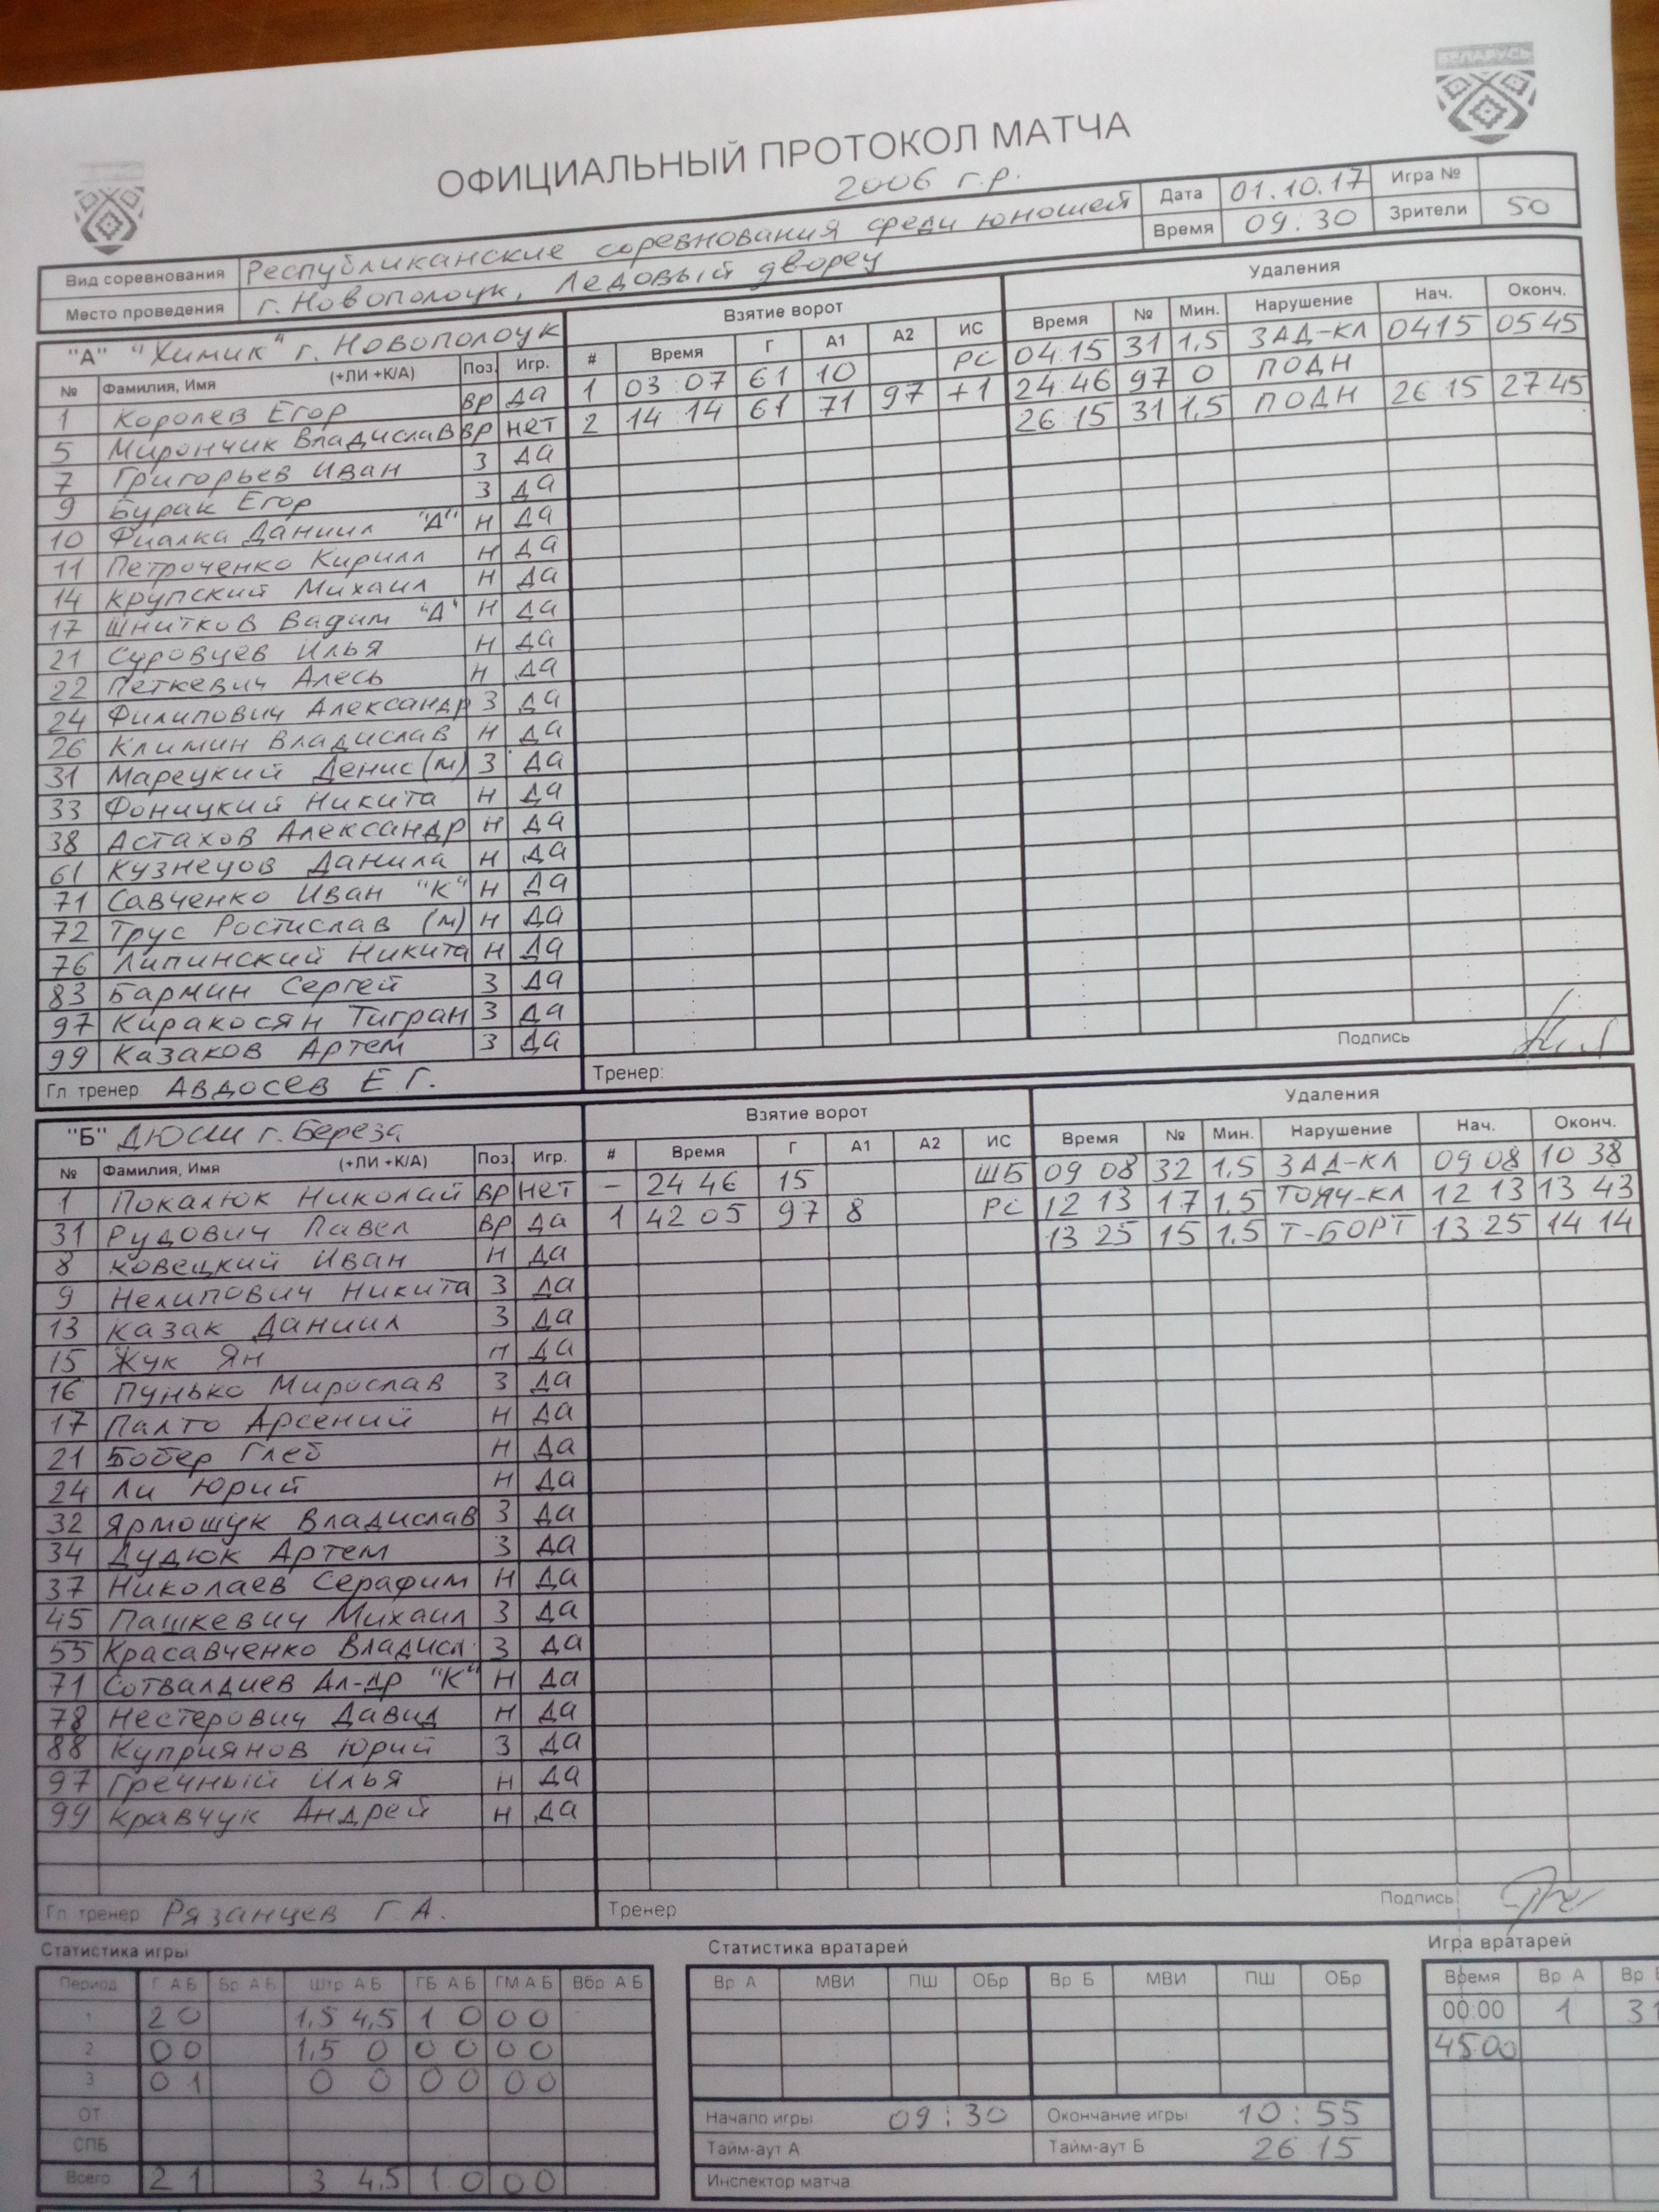 БЕЛАРУСЬ
ОФИЦИАЛЬНЫЙ ПРОТОКОЛ МАТЧА
2006 г.р.
Вид соревнования Республиканские соревнования среди юношей Дата 01.10.17 Игра №
Место проведения г. Новополоцк, Ледовый дворец Время 09:30 Зрители 50
"А" "Химик" г. Новополоцк Взятие ворот Удаления
№ Фамилия, Имя (+ЛИ +К/А) Поз. Игр. # Время Г А1 А2 ИС Время № Мин. Нарушение Нач. Оконч.
1 Королев Егор вр да 1 03:07 61 10 РС 04:15 31 1,5 ЗАД-КЛ 04 15 05 45
5 Мирончик Владислав вр нет 2 14:14 61 71 97 +1 24:46 97 0 ПОДН
7 Григорьев Иван З да 26:15 31 1,5 ПОДН 26 15 27 45
9 Бурак Егор З да
10 Фиалка Даниил "А" Н да
11 Петроченко Кирилл Н да
14 Крупский Михаил Н да
17 Шнитков Вадим "А" Н да
21 Суровцев Илья Н да
22 Петкевич Алесь Н да
24 Филипович Александр З да
26 Климин Владислав Н да
31 Марецкий Денис (м) З да
33 Фоницкий Никита Н да
38 Астахов Александр Н да
61 Кузнецов Данила Н да
71 Савченко Иван "К" Н да
72 Трус Ростислав (м) Н да
76 Липинский Никита Н да
83 Бармин Сергей З да
97 Киракосян Тигран З да
99 Казаков Артем З да
Гл. тренер Авдосев Е.Г. Тренер: Подпись
"Б" ДЮСШ г. Береза Взятие ворот Удаления
№ Фамилия, Имя (+ЛИ +К/А) Поз. Игр. # Время Г А1 А2 ИС Время № Мин. Нарушение Нач. Оконч.
1 Покалюк Николай вр нет - 24 46 15 ШБ 09 08 32 1,5 ЗАД-КЛ 09 08 10 38
31 Рудович Павел вр да 1 42 05 97 8 РС 12 13 17 1,5 ТОЛЧ-КЛ 12 13 13 43
8 Ковецкий Иван Н да 13 25 15 1,5 Т-БОРТ 13 25 14 14
9 Нелипович Никита З да
13 Казак Даниил З да
15 Жук Ян Н да
16 Пунько Мирослав З да
17 Палто Арсений Н да
21 Бобер Глеб Н да
24 Ли Юрий Н да
32 Ярмошук Владислав З да
34 Дудюк Артем З да
37 Николаев Серафим Н да
45 Пашкевич Михаил З да
55 Красавченко Владисл. З да
71 Сотвалдиев Ал-др "К" Н да
78 Нестерович Давид Н да
88 Куприянов Юрий З да
97 Гречный Илья Н да
99 Кравчук Андрей Н да
Гл. тренер Рязанцев Г.А. Тренер Подпись
Статистика игры Статистика вратарей Игра вратарей
Период Г А Б Бр А Б Штр А Б ГБ А Б ГМ А Б Вбр А Б Вр А МВИ ПШ ОБр Вр Б МВИ ПШ ОБр Время Вр А Вр
1 2 0 1,5 4,5 1 0 0 0 00:00 1 31
2 0 0 1,5 0 0 0 0 0 45:00
3 0 1 0 0 0 0 0 0
ОТ Начало игры 09:30 Окончание игры 10:55
СПБ Тайм-аут А Тайм-аут Б 26 15
Всего 2 1 3 4,5 1 0 0 0 Инспектор матча